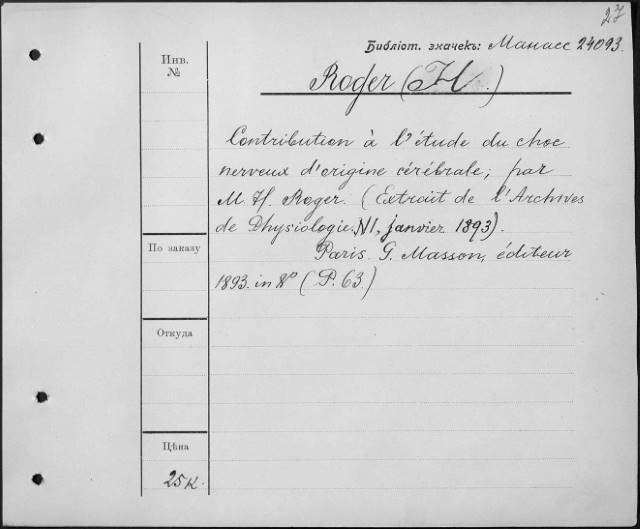 27
Библіот. значекъ: Манасс 24093.
Инв.
№
Roger (H.)
Contribution à l'étude du choc
nerveux d'origine cérébrale; par
M. H. Roger. (Extrait de l'Archives
de Physiologie, N1, janvier 1893).
По заказу
Paris. G. Masson, éditeur
1893. in 8° (P. 63.)
Откуда
Цѣна
25 к.